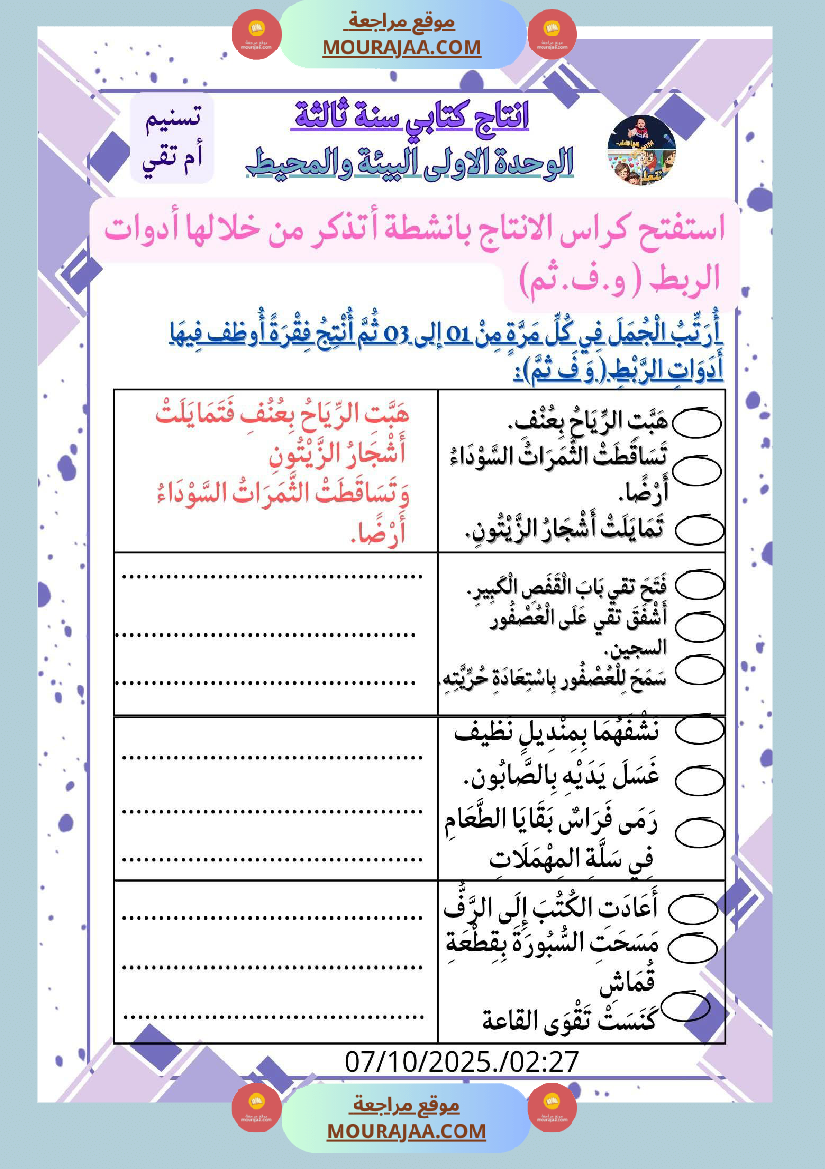 موقع مراجعة
MOURAJAA.COM
تسنيم
أم تقي
انتاج كتابي سنة ثالثة
الوحدة الاولى البيئة والمحيط
استفتح كراس الانتاج بانشطة أتذكر من خلالها أدوات
الربط ( و.ف.ثم)
أُرَتِّبُ الْجُمَلَ فِي كُلِّ مَرَّةٍ مِنْ 01 إلى 03 ثُمَّ أُنْتِجُ فِقْرَةً أُوظف فِيهَا
أَدَوَاتِ الرَّبْطِ( وَ فَ ثمَّ):
هَبَّتِ الرِّيَاحُ بِعُنْفٍ.
تَسَاقَطَتْ الثَّمَرَاتُ السَّوْدَاءُ
أَرْضًا.
تَمَايَلَتْ أَشْجَارُ الزَّيْتُونِ.
هَبَّتِ الرِّيَاحُ بِعُنُفِ فَتَمَايَلَتْ
أَشْجَارُ الزَّيْتُونِ
وَتَسَاقَطَتْ الثَّمَرَاتُ السَّوْدَاءُ
أَرْضًا.
فَتَحَ تقي بَابَ الْقَفَصِ الْكَبِيرِ.
أَشْفَقَ تقي عَلَى الْعُصْفُور
السجين.
سَمَحَ لِلْعُصْفُور بِاسْتِعَادَةِ حُرِّيَّتِهِ.
نَشَّفَهُمَا بِمِنْدِيلٍ نَظيف
غَسَلَ يَدَيْهِ بِالصَّابُون.
رَمَى فَرَاسٌ بَقَايَا الطَّعَامِ
فِي سَلَّةِ المِهْمَلَاتِ
أَعَادَتِ الكُتُبَ إِلَى الرَّفِّ
مَسَحَتِ السُّبُورَةَ بِقِطْعَةِ
قُمَاشِ
كَنَسَتْ تَقْوَى القاعة
07/10/2025./02:27
موقع مراجعة
MOURAJAA.COM